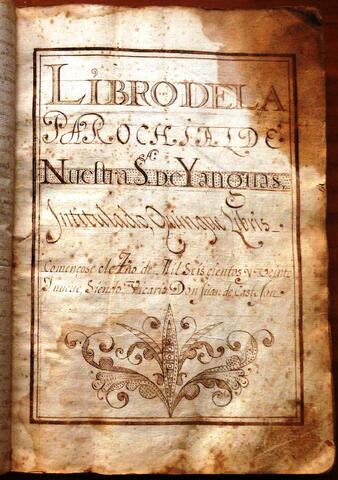 LIBRO DE LA
PAROCHIAL DE
NUESTRA S.RA DE YANGUAS,
Intitulado, Quinque Libris
Començose el Año de Mil Seiscientos y Veinte
y nueve, Siendo Vicario Don Juan de Castejon